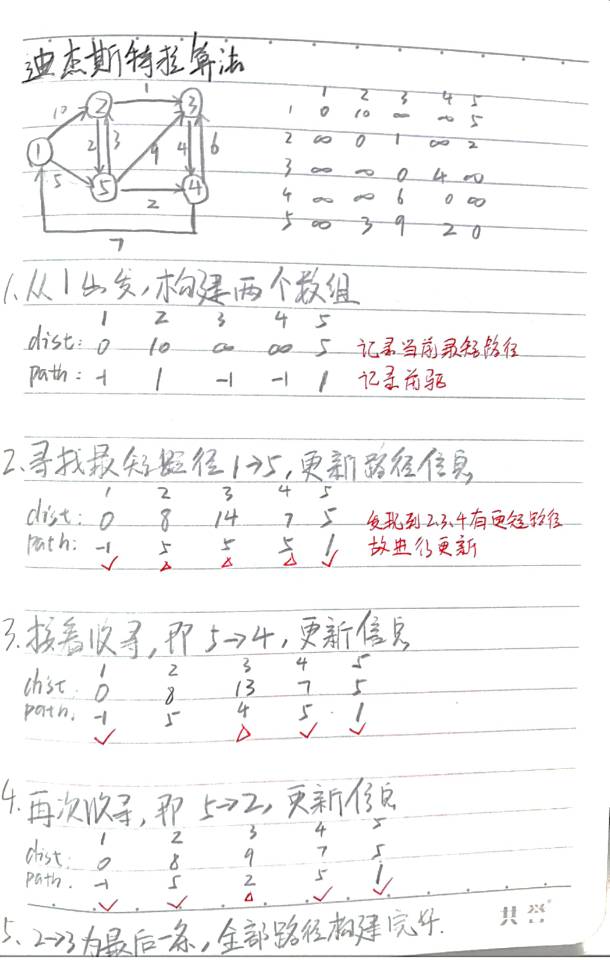 迪杰斯特拉算法
10 ② 1 ③
① 2 3 9 4 6
5 ⑤ 2 ④
7
1 2 3 4 5
1 0 10 ∞ ∞ 5
2 ∞ 0 1 ∞ 2
3 ∞ ∞ 0 4 ∞
4 ∞ ∞ 6 0 ∞
5 ∞ 3 9 2 0
1、从1出发,构建两个数组
1 2 3 4 5
dist: 0 10 ∞ ∞ 5 记录当前最短路径
path: -1 1 -1 -1 1 记录前驱
2、寻找最短路径1→5,更新路径信息
1 2 3 4 5
dist: 0 8 14 7 5 发现到2.3.4有更短路径
path: -1 5 5 5 1 故进行更新
3、接着收寻,即5→4,更新信息
1 2 3 4 5
dist: 0 8 13 7 5
path: -1 5 4 5 1
4、再次收寻,即5→2,更新信息
1 2 3 4 5
dist: 0 8 9 7 5
path. -1 5 2 5 1
5、2→3为最后一条,全部路径构建完毕.